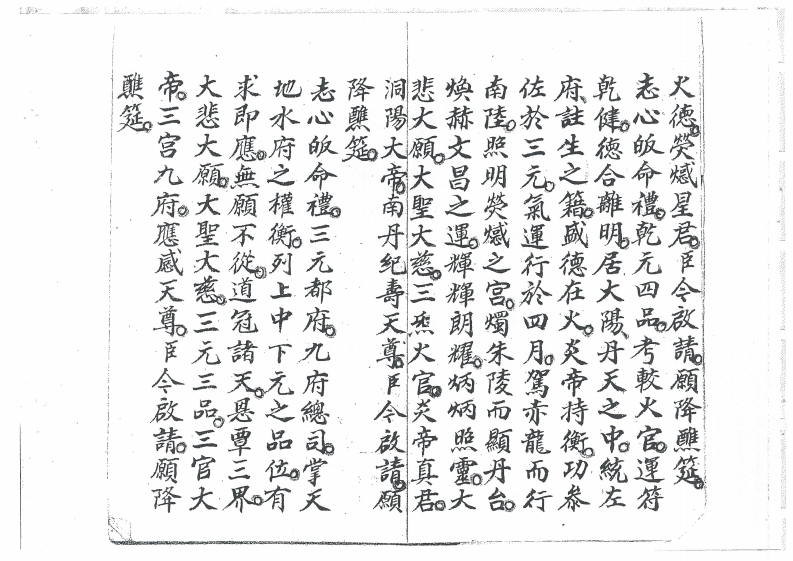 火德熒惑星君。臣今啟請。願降醮筵。
志心皈命禮。乾元四品。考較火官。運符
乾健。德合離明。居大陽丹天之中。統左
府註生之籍。盛德在火。炎帝持衡。功叅
佐於三元。氣運行於四月。駕赤龍而行
南陸。照明熒惑之宮。燭朱陵而顯丹台。
煥赫文昌之運。輝輝朗耀。炳炳照靈。大
悲大願。大聖大慈。三炁火官。炎帝真君。
洞陽大帝。南丹紀壽天尊。臣今啟請。願
降醮筵。
志心皈命禮。三元都府。九府總司。掌天
地水府之權衡。列上中下元之品位。有
求即應。無願不從。道冠諸天。恩覃三界。
大悲大願。大聖大慈。三元三品。三官大
帝。三宮九府。應感天尊。臣今啟請。願降
醮筵。